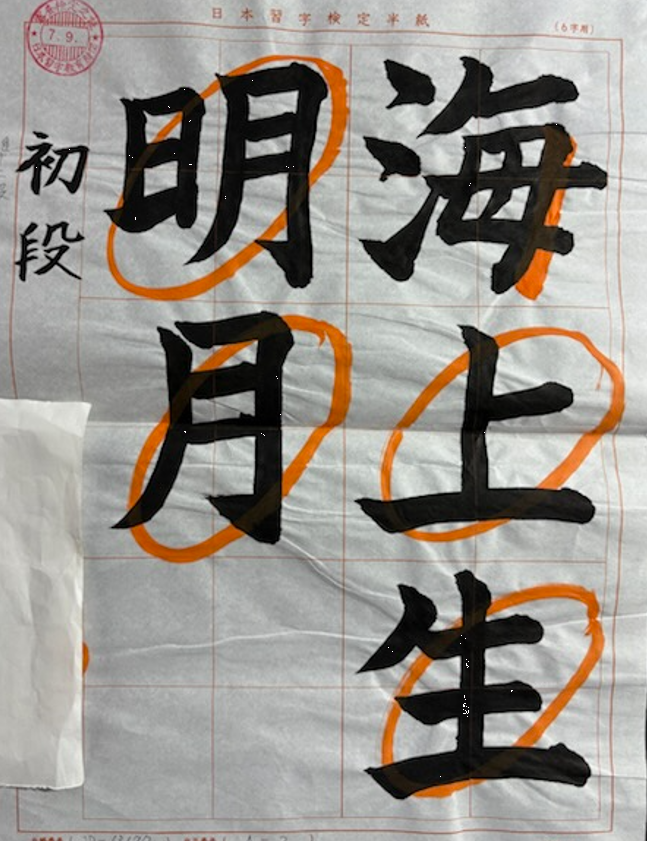 日本習字検定半紙
(6字用)
7.9.
海上生
明月
初段